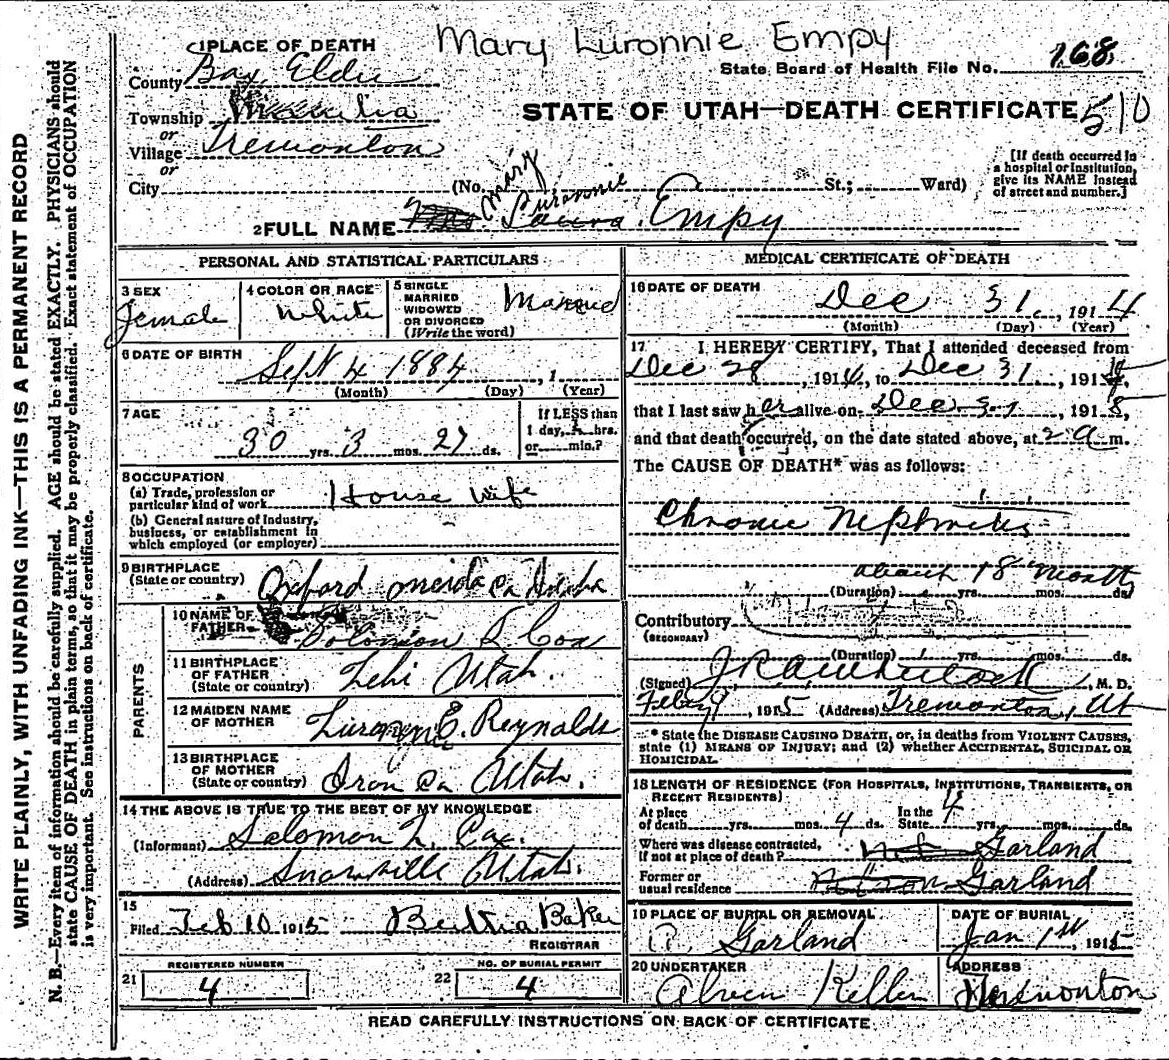 Mary Luronnie Empy
1 PLACE OF DEATH
State Board of Health File No. 168
County Box Elder
STATE OF UTAH—DEATH CERTIFICATE 510
Township
or
Village Tremonton
or
City (No. St.; Ward)
[If death occurred in
a hospital or institution,
give its NAME instead
of street and number.]
Mary Luronnie
2 FULL NAME Mrs. Laura Empy
PERSONAL AND STATISTICAL PARTICULARS
3 SEX
Female
4 COLOR OR RACE
White
5 SINGLE
MARRIED
WIDOWED
OR DIVORCED
(Write the word)
Married
6 DATE OF BIRTH
Sept 4 1884, 1
(Month) (Day) (Year)
7 AGE
30 yrs. 3 mos. 27 ds.
If LESS than
1 day, hrs.
or min.?
8 OCCUPATION
(a) Trade, profession or
particular kind of work House Wife
(b) General nature of industry,
business, or establishment in
which employed (or employer)
9 BIRTHPLACE
(State or country) Oxford Oneida Co Idaho
PARENTS
10 NAME OF
FATHER Solomon L Cox
11 BIRTHPLACE
OF FATHER
(State or country) Lehi Utah.
12 MAIDEN NAME
OF MOTHER E. Reynolds
13 BIRTHPLACE
OF MOTHER
(State or country) Iron Co Utah.
14 THE ABOVE IS TRUE TO THE BEST OF MY KNOWLEDGE
(Informant) Solomon L. Cox.
(Address) Snowville Utah.
15
Filed Feb 10 1915 Bertha Baker
REGISTRAR
REGISTERED NUMBER
21 4
NO. OF BURIAL PERMIT
22 4
MEDICAL CERTIFICATE OF DEATH
16 DATE OF DEATH
Dec 31, 1914
(Month) (Day) (Year)
17 I HEREBY CERTIFY, That I attended deceased from
Dec 28, 1914, to Dec 31, 1914,
that I last saw her alive on Dec 31, 191
and that death occurred, on the date stated above, at 2 a m.
The CAUSE OF DEATH* was as follows:
Chronic Nephritis
about 18 Months
(Duration) yrs. mos. ds.
Contributory
(SECONDARY)
(Duration) yrs. mos. ds.
(Signed) , M. D.
Feby 9, 1915 (Address) Tremonton, Ut
* State the DISEASE CAUSING DEATH, or, in deaths from VIOLENT CAUSES,
state (1) MEANS OF INJURY; and (2) whether ACCIDENTAL, SUICIDAL OR
HOMICIDAL.
18 LENGTH OF RESIDENCE (FOR HOSPITALS, INSTITUTIONS, TRANSIENTS, OR
RECENT RESIDENTS)
At place
of death yrs. mos. 4 ds.
In the
State 4 yrs. mos. ds.
Where was disease contracted,
if not at place of death? Garland
Former or
usual residence Garland
19 PLACE OF BURIAL OR REMOVAL
Garland
DATE OF BURIAL
Jan 1st, 1915
20 UNDERTAKER
Keller
ADDRESS
Tremonton
READ CAREFULLY INSTRUCTIONS ON BACK OF CERTIFICATE
WRITE PLAINLY, WITH UNFADING INK—THIS IS A PERMANENT RECORD
N. B.—Every item of information should be carefully supplied. AGE should be stated EXACTLY. PHYSICIANS should
state CAUSE OF DEATH in plain terms, so that it may be properly classified. Exact statement of OCCUPATION
is very important. See instructions on back of certificate.